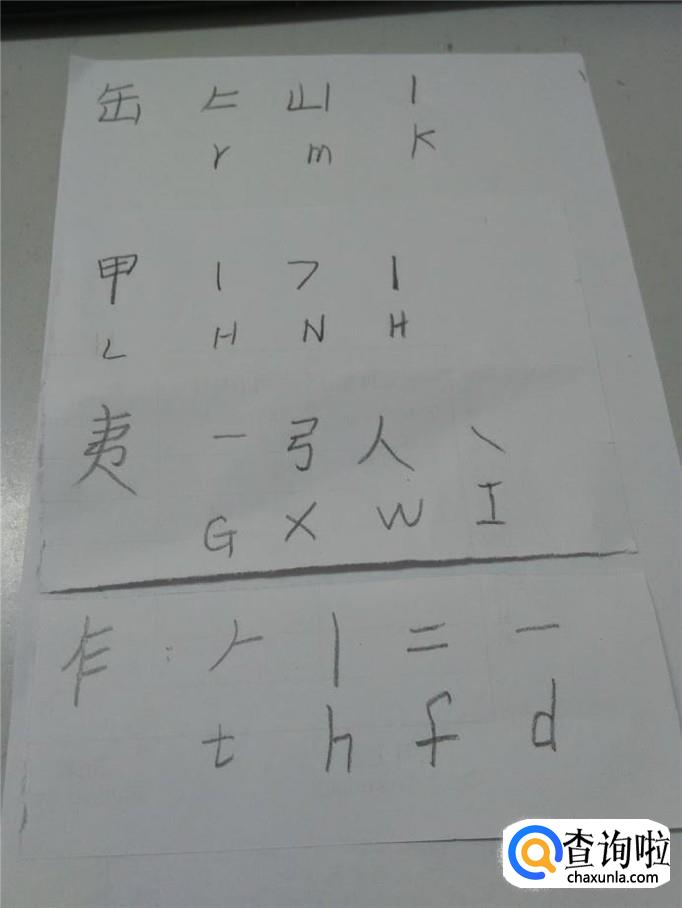 缶 𠂉 山 丨
r m K
甲 丨 ㇇ 丨
L H N H
夷 一 弓 人 ㇏
G X W I
乍 : 𠂉 丨 二 一
t h f d
查询啦
chaxunla.com